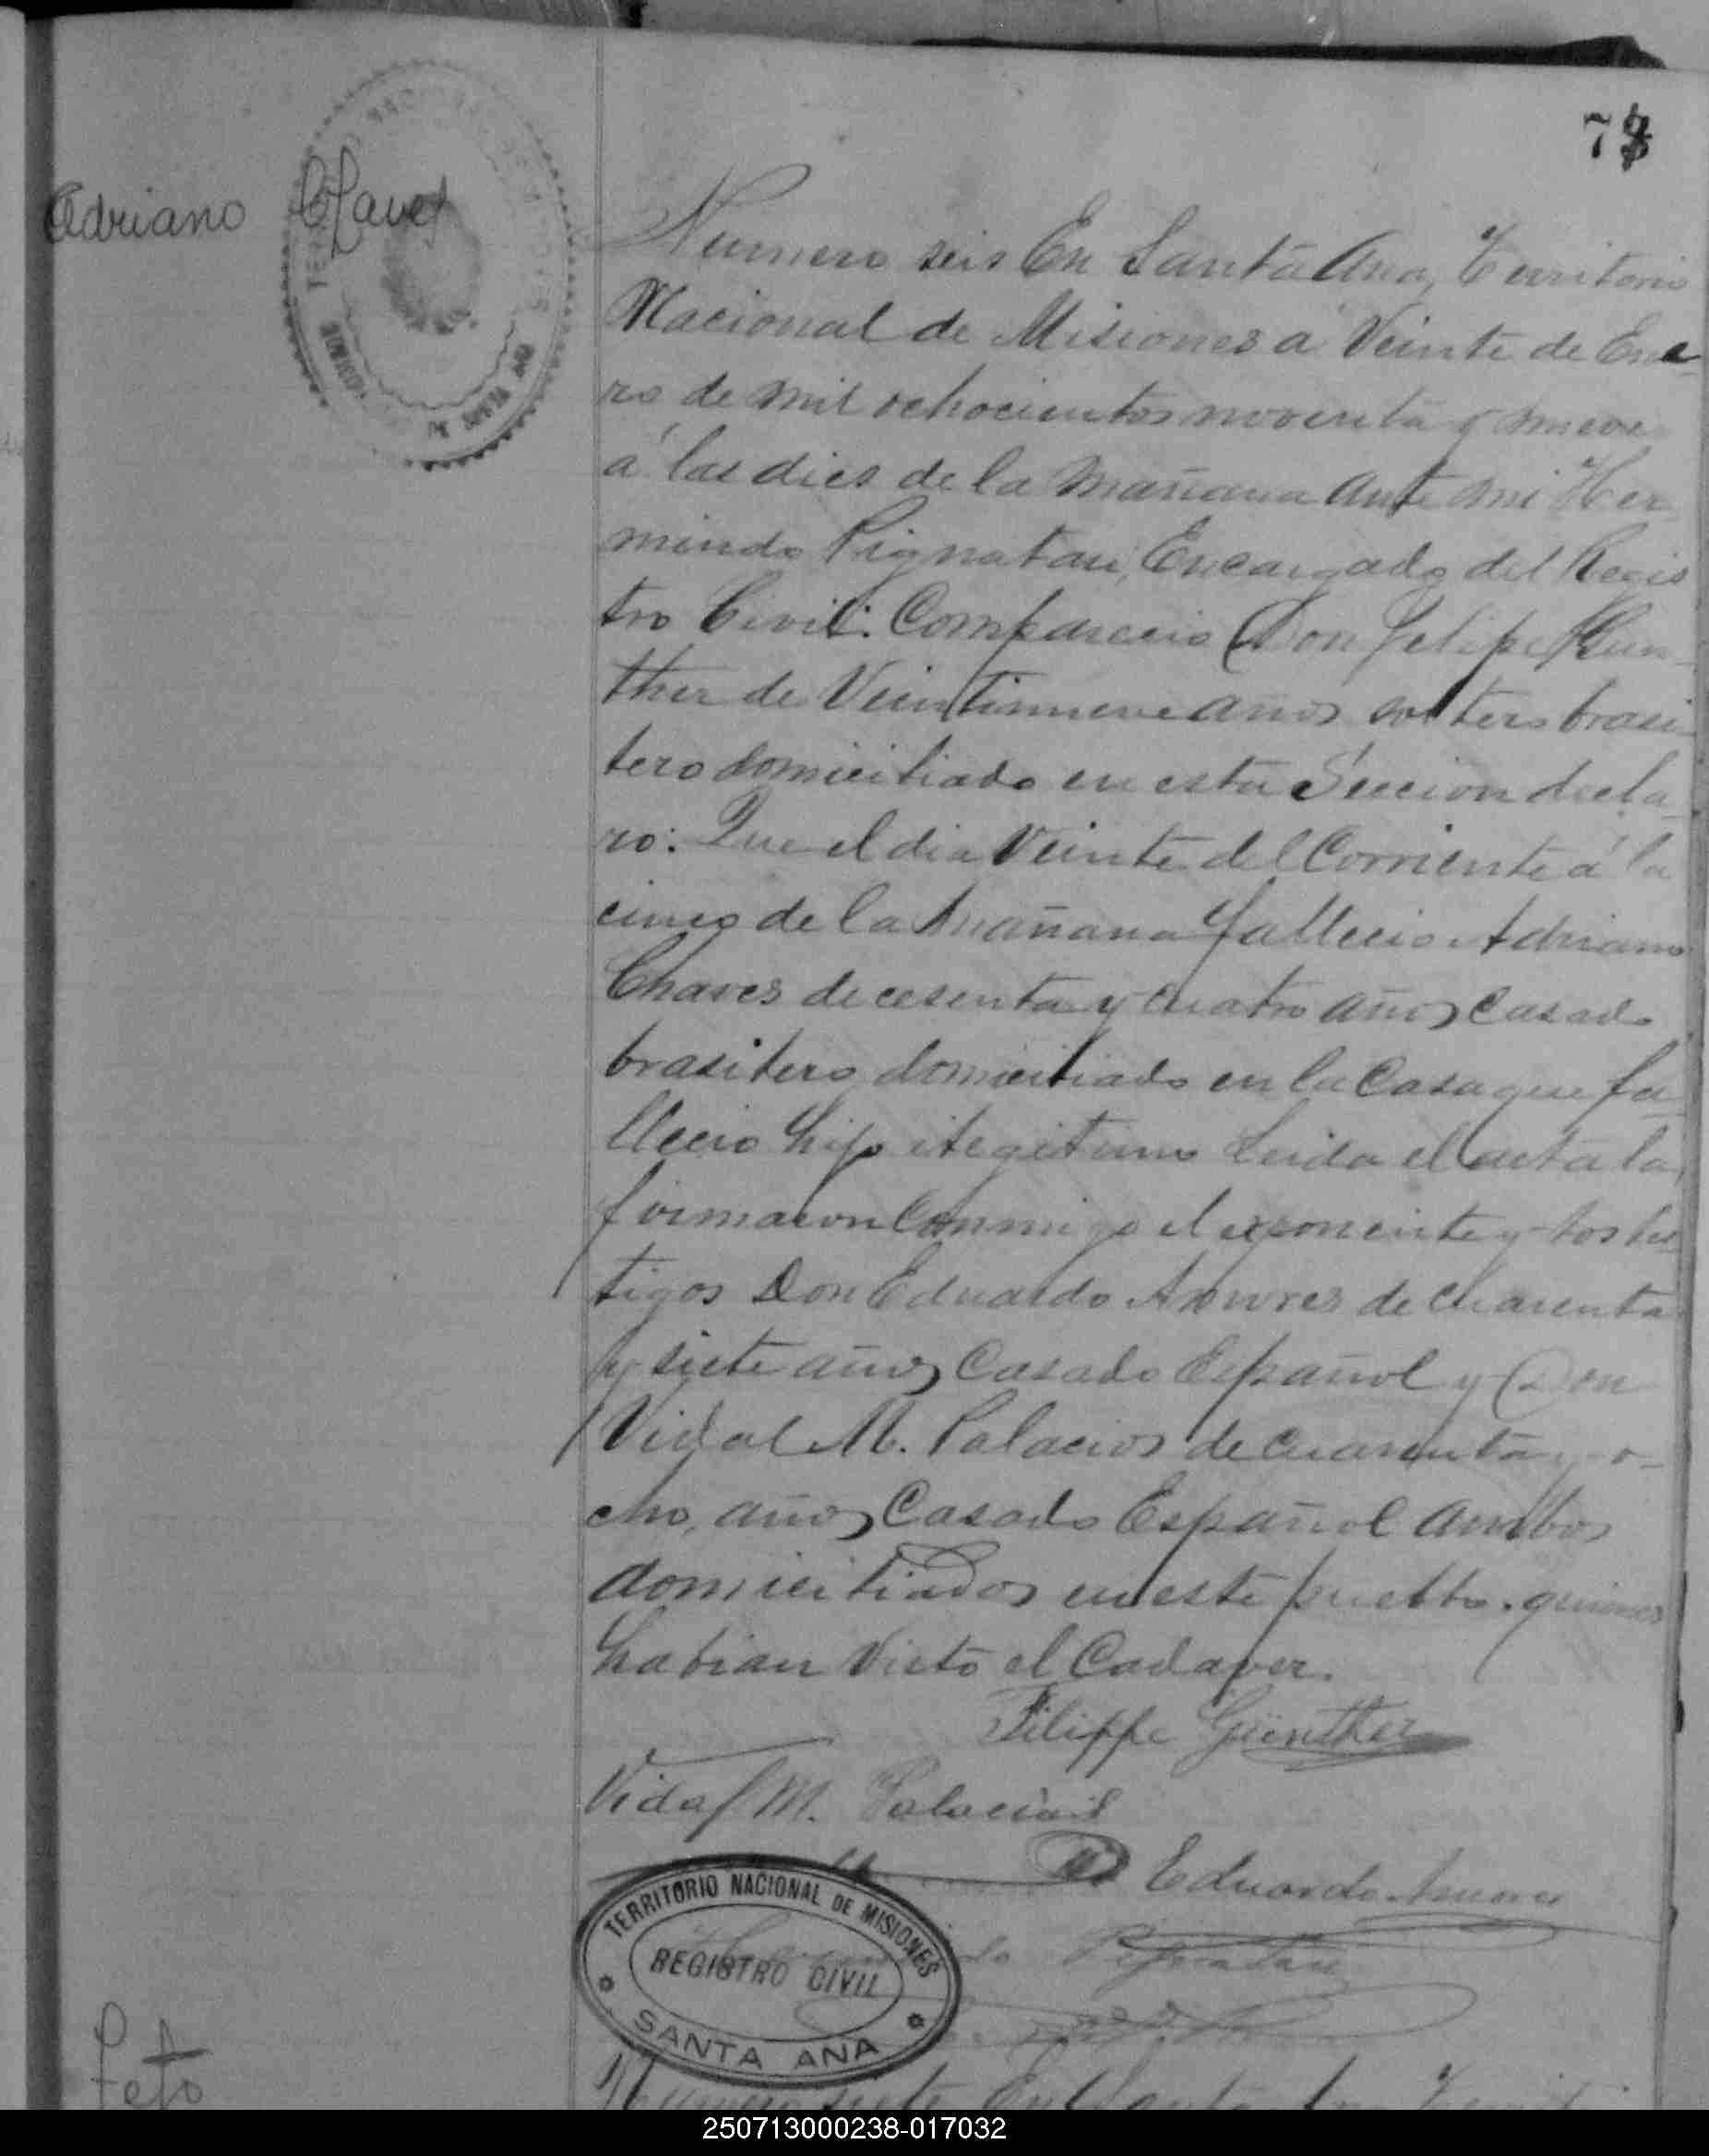 73
Adriano Chaves
Numero seis En Santa Ana, Territorio
Nacional de Misiones á Veinte de Ene
ro de mil ochocientos noventa y nueve
á las dies de la mañana ante mi Her
mindo Pignatari, Encargado del Regis
tro Civil: Comparecio Don Felipe Gun
ther de Veintinueve años soltero brasi
lero domiciliado en esta Seccion decla
ro: Que el dia Veinte del Corriente á la
cinco de la mañana fallecio Adriano
Chaves de cesenta y cuatro años casado
brasilero domiciliado en la Casa que fa
llecio hijo ilegitimo Leida el acta la
firmaron Conmigo el exponente y los tes
tigos Don Eduardo de cuarenta
y siete años Casado Español y Don
Vidal M. Palacios de cuarenta y o-
cho, años Casado Español ambos
domiciliados en este pueblo. quienes
habian visto el Cadaver.
Filippe Günther
Vidal M. Palacios
Eduardo
Pignatari
TERRITORIO NACIONAL DE MISIONES
REGISTRO CIVIL
SANTA ANA
Feto
Numero siete En Santa Ana Territ
250713000238-017032